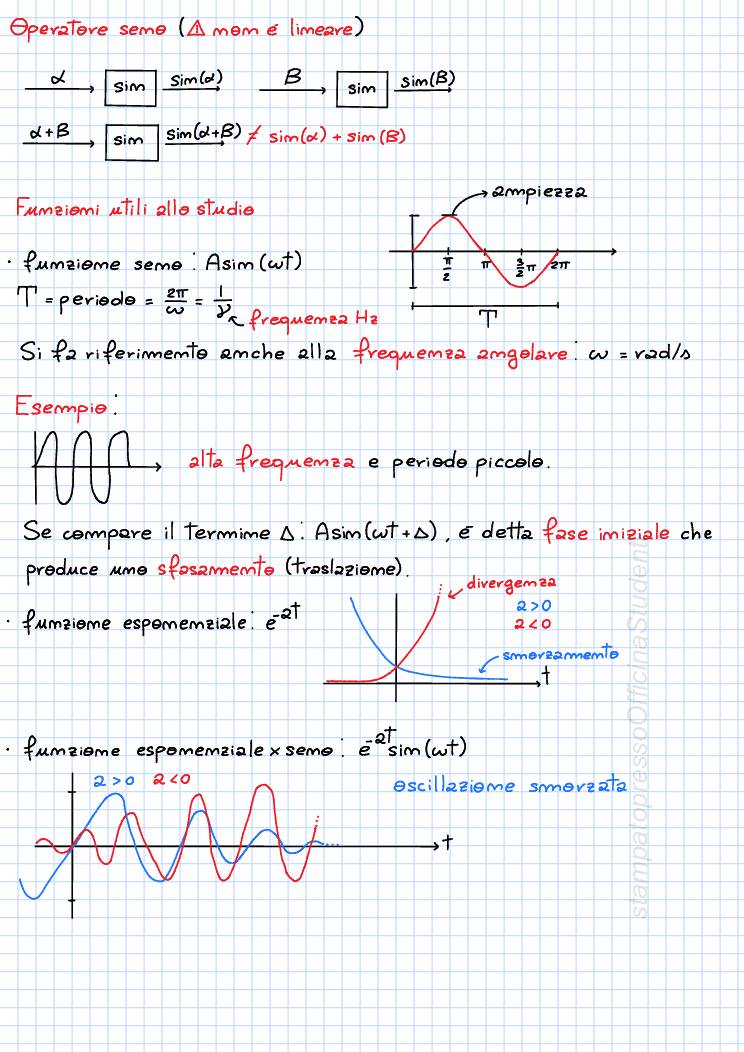 Operatore seno (⚠ non é lineare)
α sin sin(α) β sin sin(β)
α+β sin sin(α+β) ≠ sin(α) + sin(β)
ampiezza
Funzioni utili allo studio
π/2 π 3/2π 2π
• funzione seno: Asin(ωt)
T = periodo = 2π/ω = 1/ν
frequenza Hz
T
Si fa riferimento anche alla frequenza angolare: ω = rad/s
Esempio:
alta frequenza e periodo piccolo.
Se compare il termine Δ: Asin(ωt+Δ), é detta fase iniziale che
produce uno sfasamento (traslazione).
divergenza
a>0
• funzione esponenziale: e^-at
a<0
smorzamento
t
• funzione esponenziale × seno: e^-at sin(ωt)
a>0 a<0
oscillazione smorzata
t
stampatopressoOfficinaStudenti